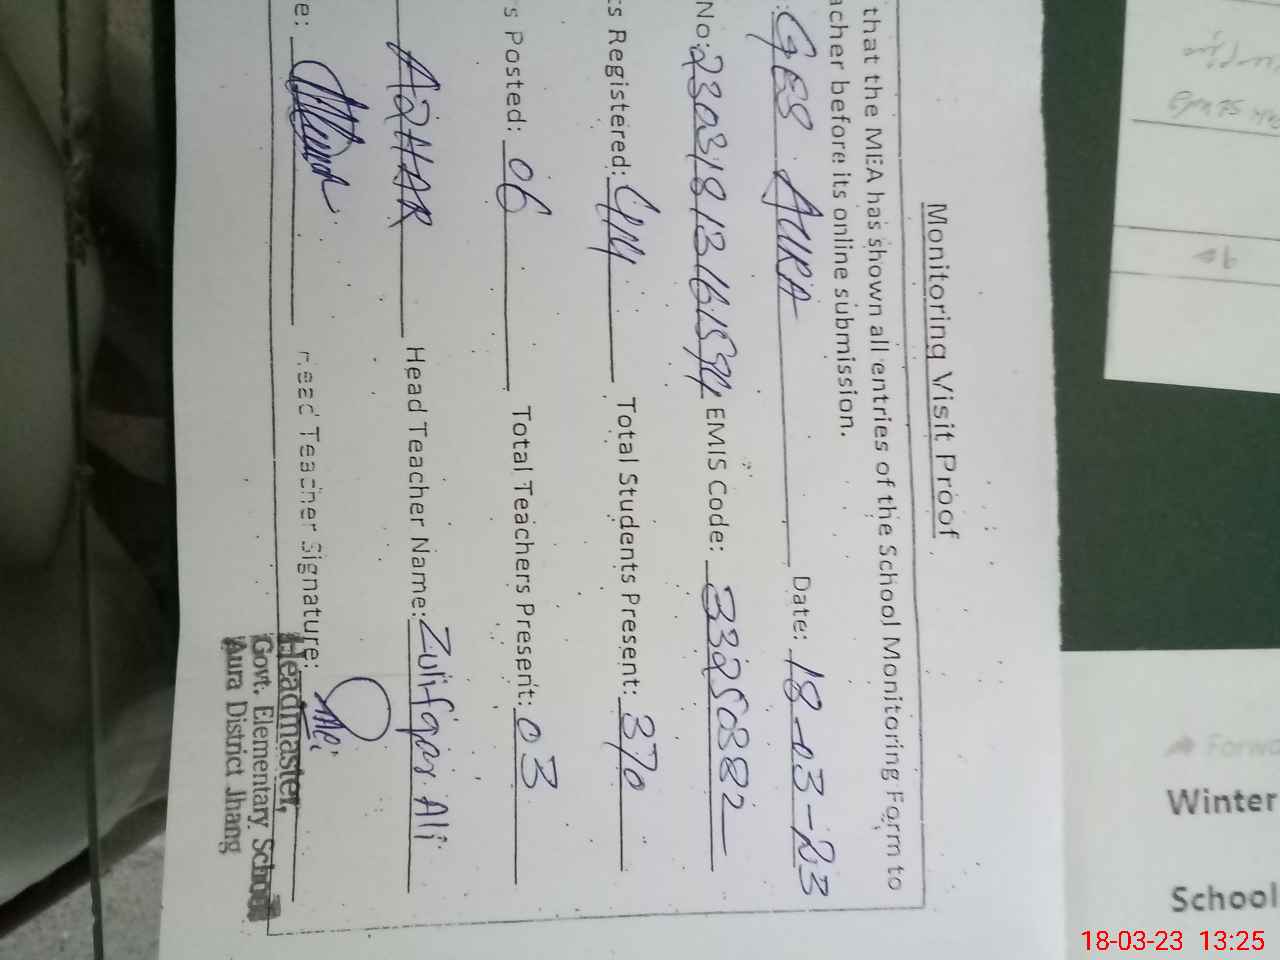 Monitoring Visit Proof
that the MEA has shown all entries of the School Monitoring Form to
acher before its online submission.
: GES AURA Date: 18-03-23
No: EMIS Code: 33250382
s Registered: 414 Total Students Present: 370
s Posted: 06 Total Teachers Present: 03
AZHAR Head Teacher Name: Zulifqar Ali
e: Head Teacher Signature:
Headmaster,
Govt. Elementary School
Aura District Jhang
Forwa
Winter
School
18-03-23 13:25